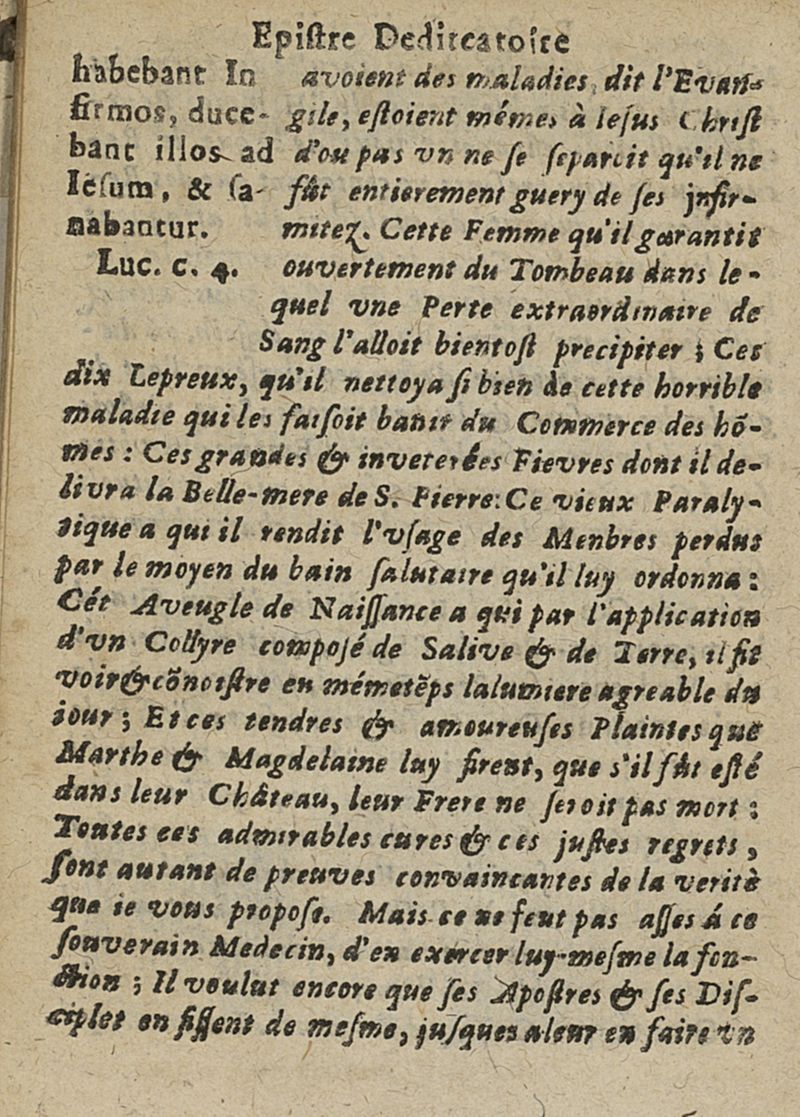 Epiſtre Dedircatoire
habebant In
firmos, duce-
bant illos ad
Ieſum, & ſa-
nabantur.
Luc. c. 4.
avoient des maladies, dit l'Evan-
gile, eſtoient mémes à Ieſus Chriſt
d'ou pas vn ne ſe ſeparoit qu'il ne
fût entierement guery de ſes jnfir-
mitez. Cette Femme qu'il garantit
ouvertement du Tombeau dans le-
quel vne Perte extraordinaire de
Sang l'alloit bientoſt precipiter ; Ces
dix Lepreux, qu'il nettoya ſi bien de cette horrible
maladie qui les faiſoit banir du Commerce des hõ-
mes : Ces grandes & inveterées Fievres dont il de-
livra la Belle-mere de S. Pierre: Ce vieux Paraly-
tique a qui il rendit l'vſage des Menbres perdus
par le moyen du bain ſalutaire qu'il luy ordonna :
Cét Aveugle de Naiſſance a qui par l'application
d'vn Collyre compoſé de Salive & de Terre, il fit
voir & cõnoiſtre en mémetẽps lalumiere agreable du
iour ; Et ces tendres & amoureuſes Plaintes que
Marthe & Magdelaine luy firent, que s'il fût eſté
dans leur Château, leur Frere ne ſeroit pas mort :
Toutes ces admirables cures & ces juſtes regrets,
ſont autant de preuves convaincantes de la veritè
que ie vous propoſe. Mais ce ne feut pas aſſes á ce
ſouverain Medecin, d'en exercer luy-meſme la fon-
ction ; Il voulut encore que ſes Apoſtres & ſes Diſ-
ciplet en fiſſent de meſme, juſques a leur en faire vn